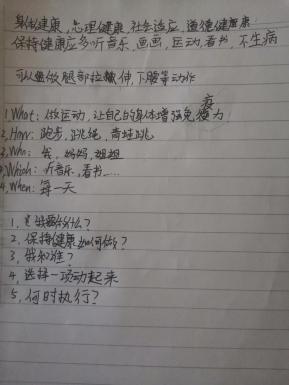 身体健康，心理健康，社会适应，道德健康
保持健康应多听音乐，画画，运动，看书，不生病
可以做腿部拉伸，下腰等动作
1, What: 做运动，让自己的身体增强免疫力
2, How: 跑步，跳绳，青蛙跳
3, Who: 我，妈妈，姐姐
Which: 听音乐，看书……
4, When: 每一天
1, 我要做什么？
2, 保持健康如何做？
3, 我和谁？
4, 选择一项动起来
5, 何时执行？